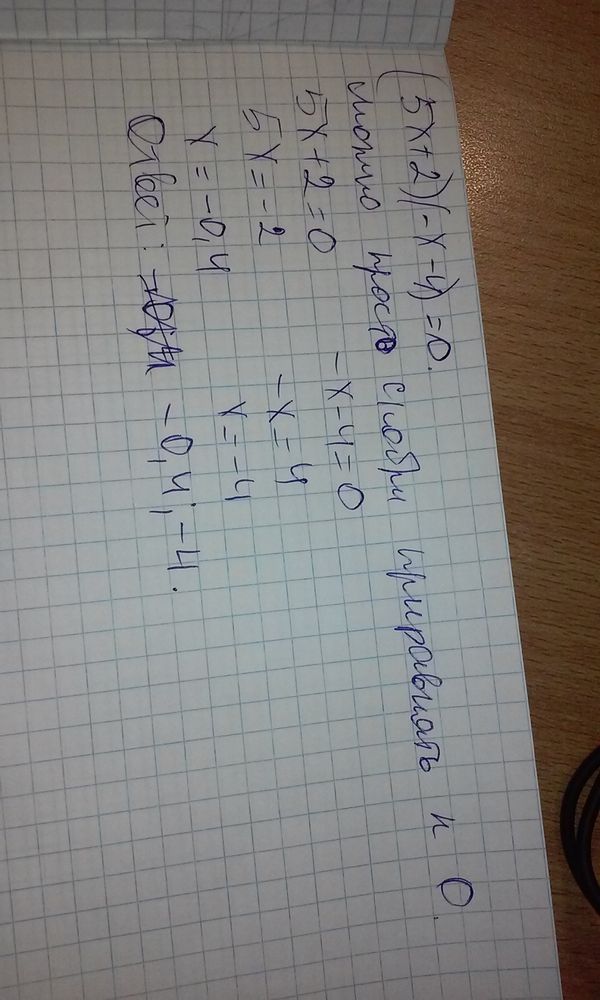 (5x+2)(-x-4)=0.
можно просто скобки приравнять к 0.
5x+2=0 -x-4=0
5x=-2 -x=4
x=-0,4 x=-4
Ответ: -0,4; -4.